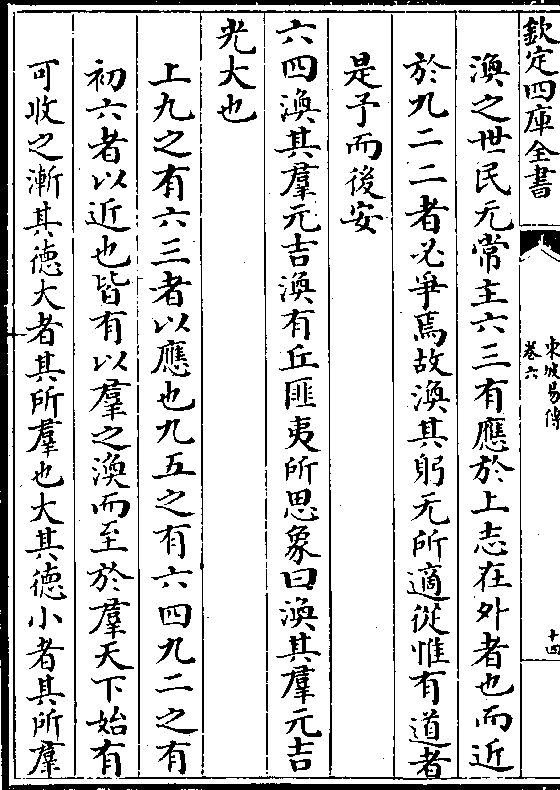 欽定四庫全書
東坡易傳
卷六
十四
渙之世民无常主六三有應於上志在外者也而近
於九二二者必爭焉故渙其躬无所適從惟有道者
是予而後安
六四渙其羣元吉渙有丘匪夷所思象曰渙其羣元吉
光大也
上九之有六三者以應也九五之有六四九二之有
初六者以近也皆有以羣之渙而至於羣天下始有
可收之漸其德大者其所羣也大其德小者其所羣